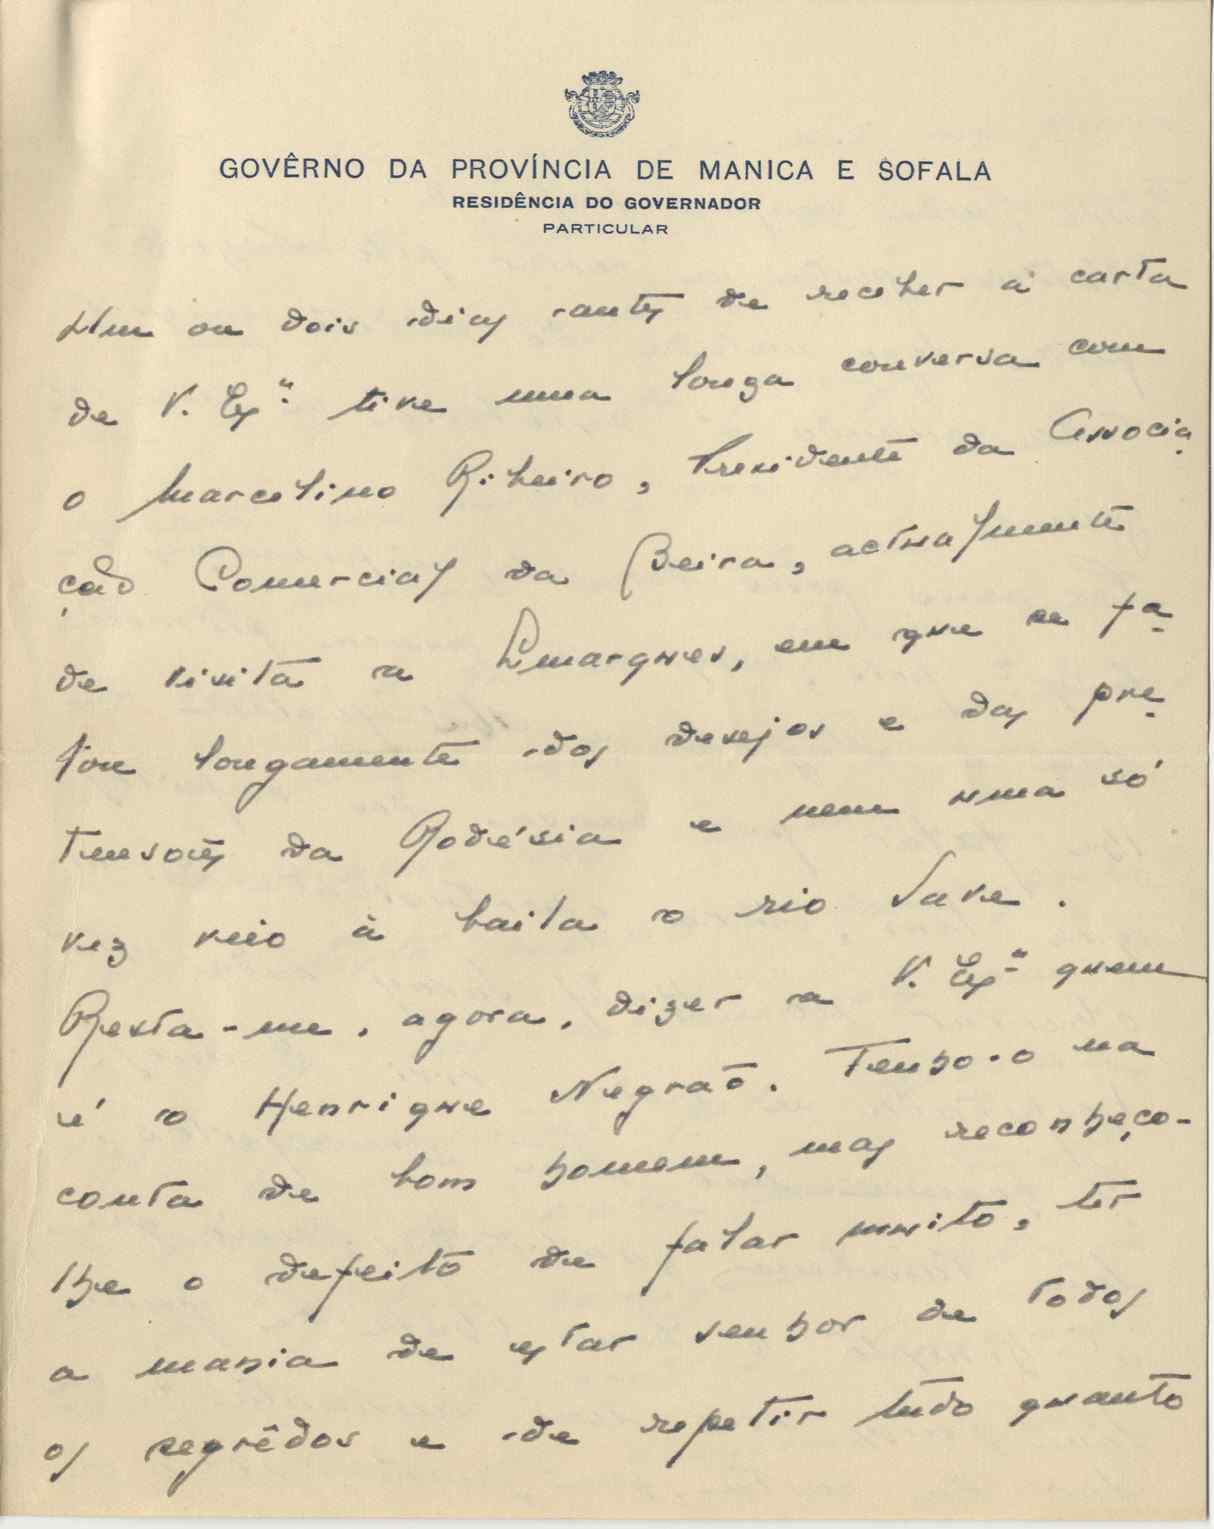 GOVÊRNO DA PROVÍNCIA DE MANICA E SOFALA
RESIDÊNCIA DO GOVERNADOR
PARTICULAR
Um ou dois dias antes de receber a carta
de V. Exª. tive uma longa conversa com
o Marcelino Ribeiro, Presidente da Associa-
ção Comercial da Beira, actualmente
de visita a Lmarques, em que se fa-
lou longamente dos desejos e das pre-
tensões da Rodésia e nem uma só
vez veio à baila o rio Save.
Resta-me, agora, dizer a V. Exª quem
é o Henrique Negrão. Tenho-o na
conta de bom homem, mas reconheço-
lhe o defeito de falar muito, ter
a mania de estar senhor de todos
os segrêdos e de repetir tudo quanto